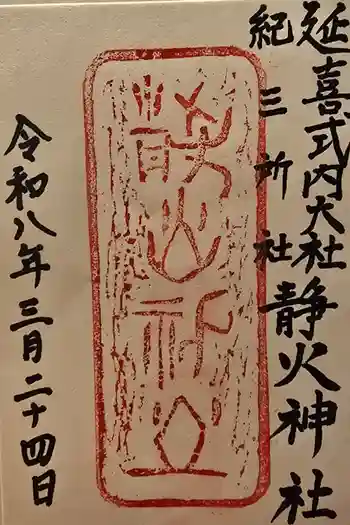 延喜式内大社静火神社
紀三所社
静火神社
令和八年三月二十四日